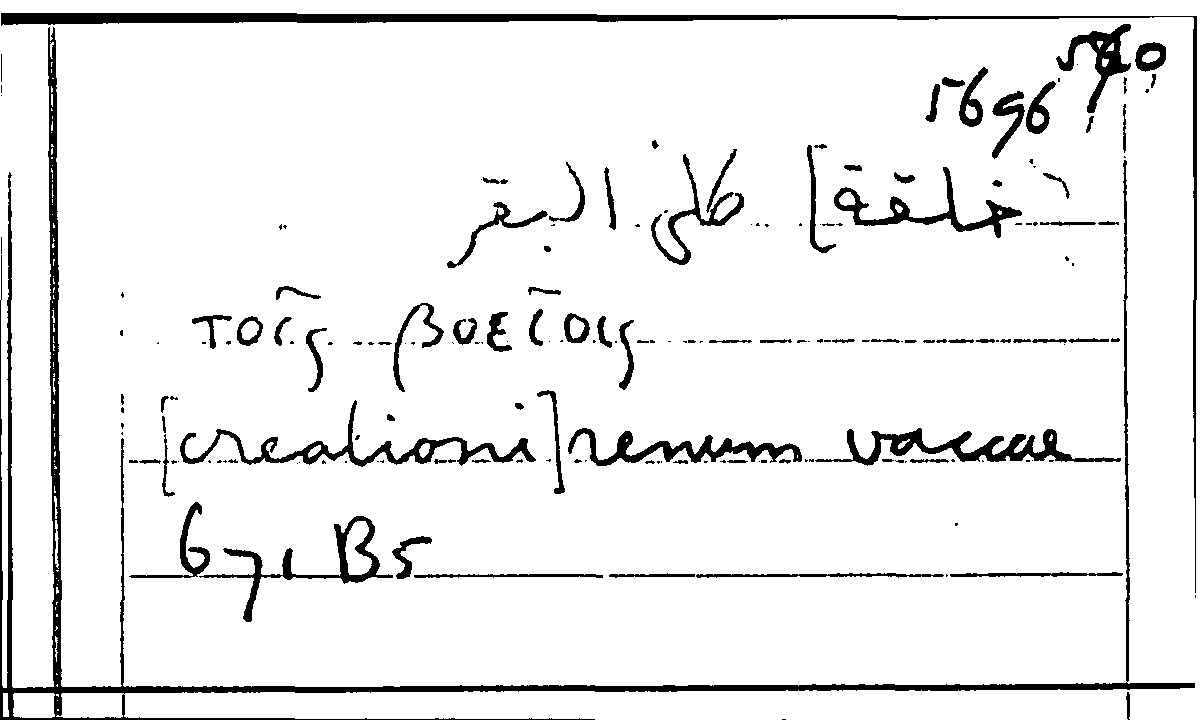 5696
خلقة] كلى البقر
τοῖς βοείοις
[creationi] renum vaccae
671 B5